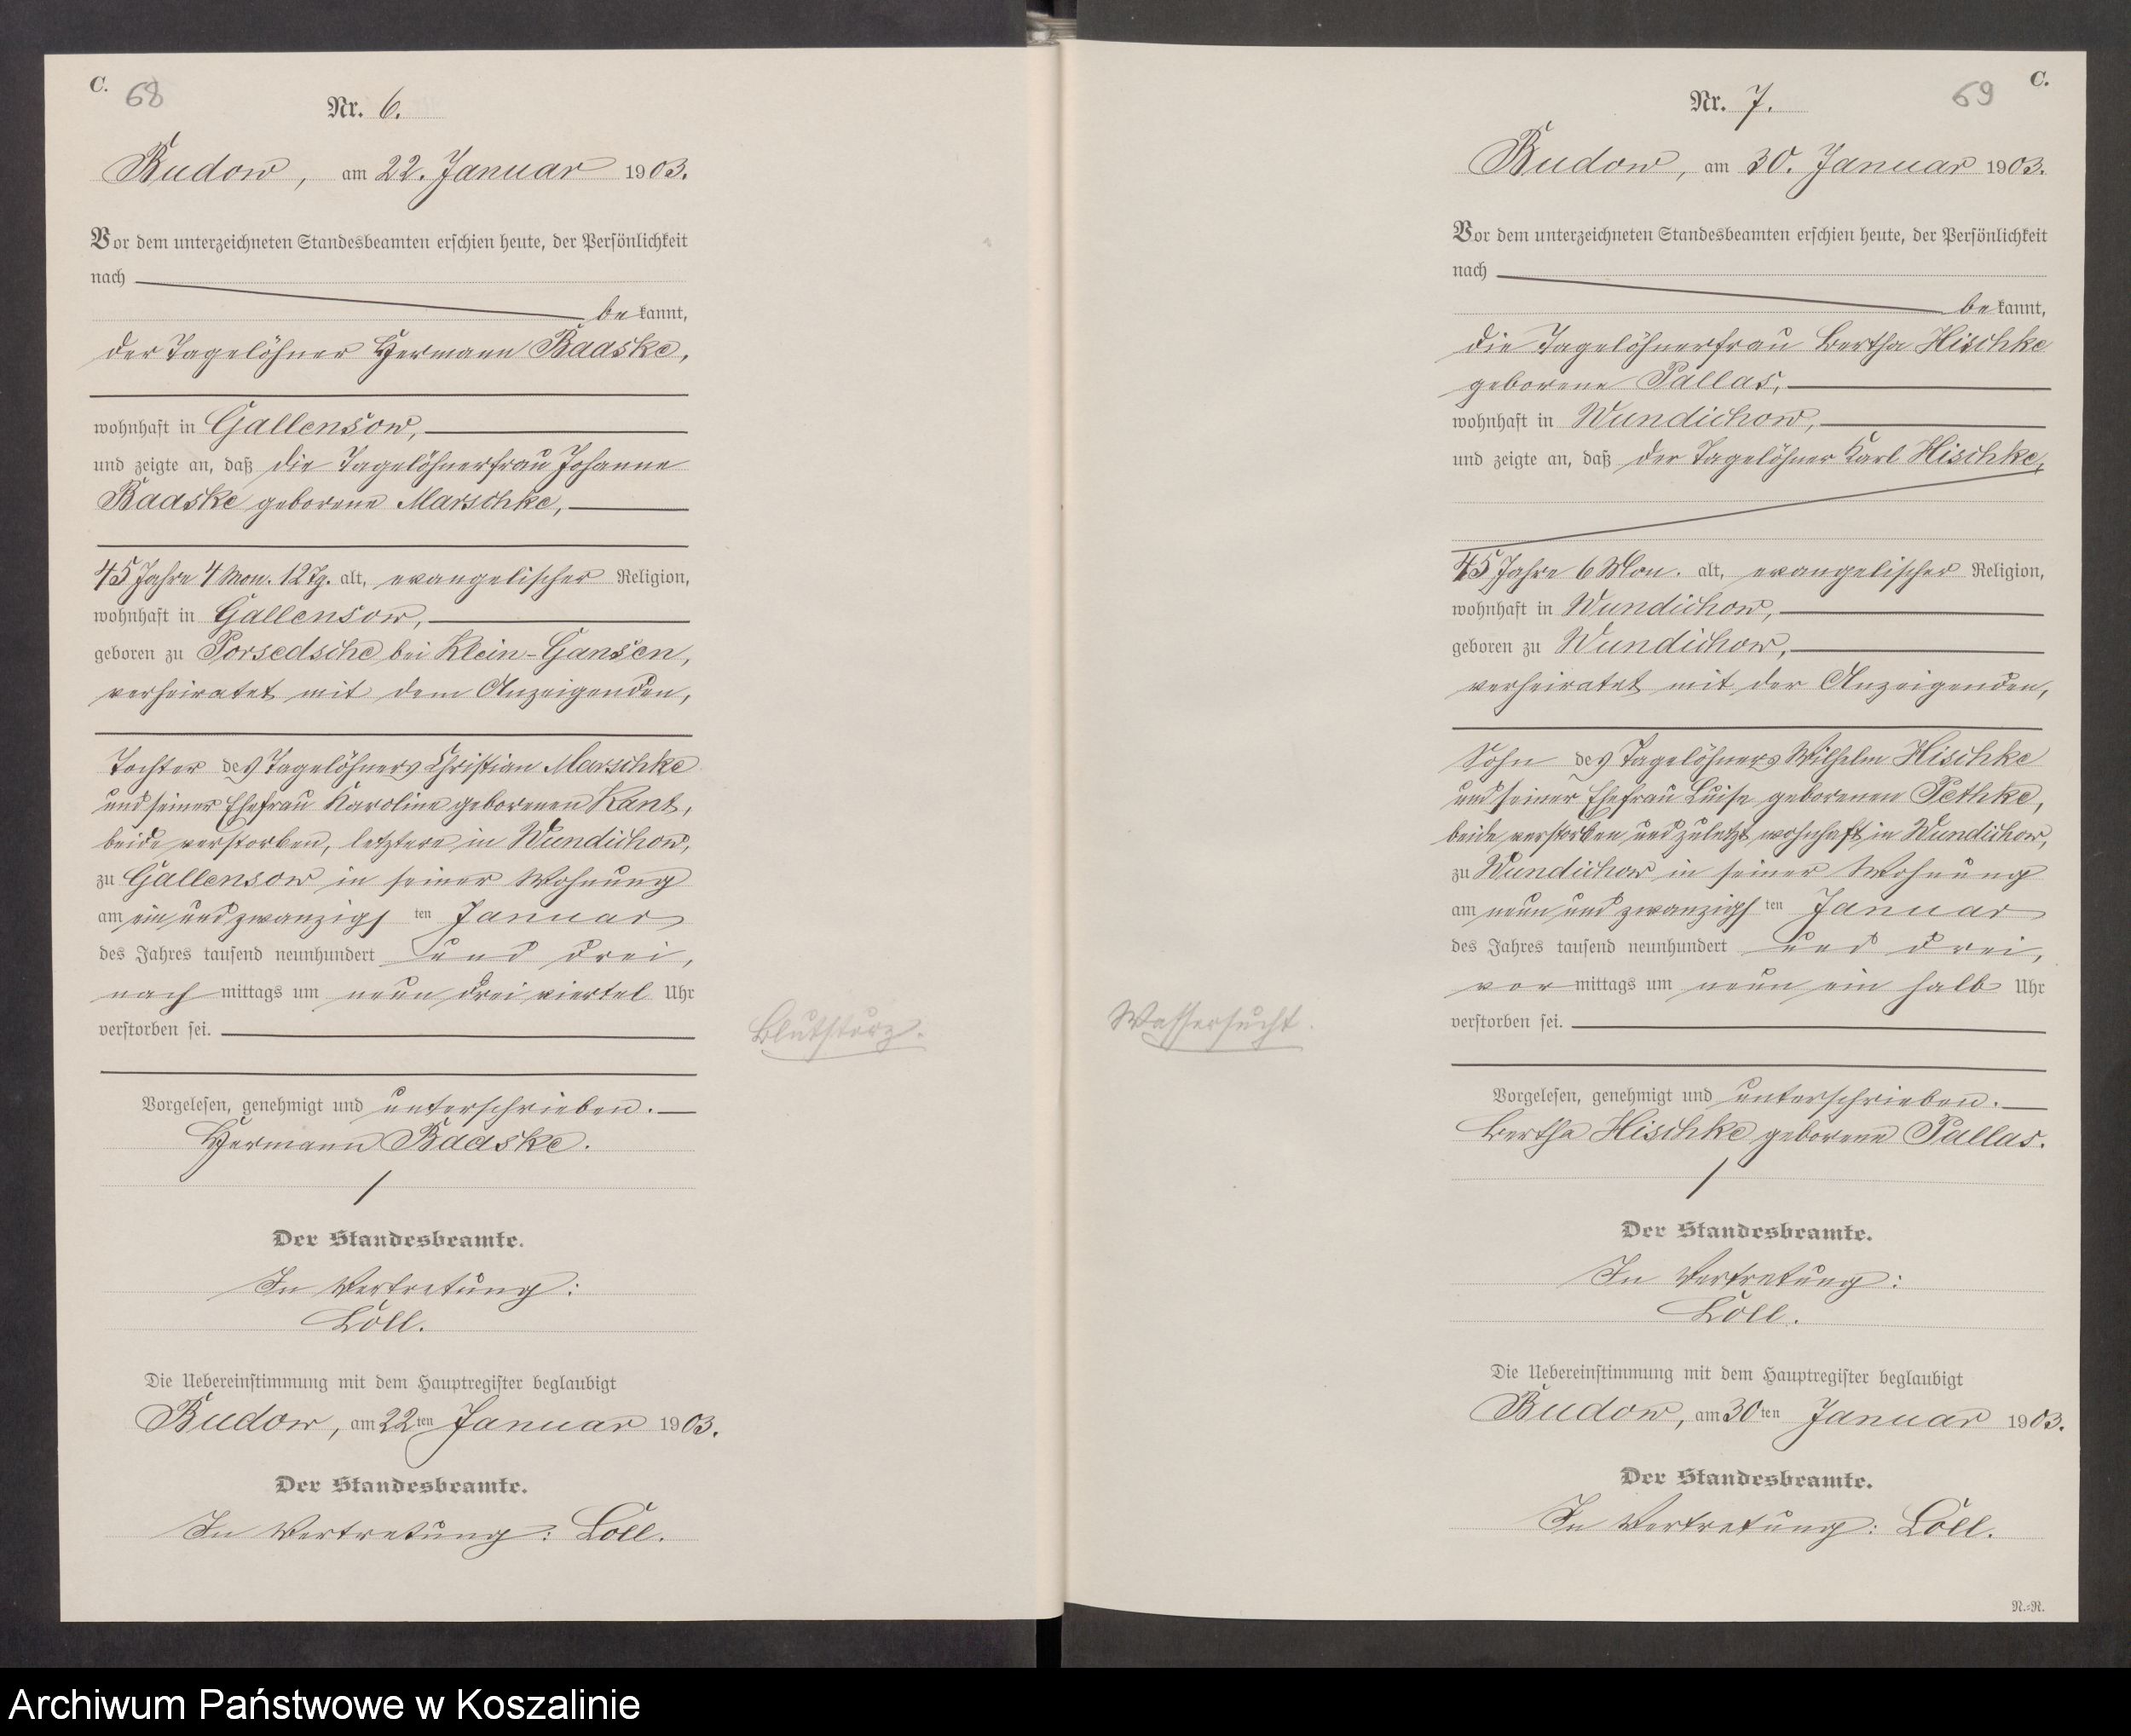 C. 68
Nr. 6.
Budow, am 22. Januar 1903.
Vor dem unterzeichneten Standesbeamten erschien heute, der Persönlichkeit
nach
bekannt,
der Tagelöhner Hermann Baaske,
wohnhaft in Gallensow,
und zeigte an, daß die Tagelöhnerfrau Johanne
Baaske geborene Marschke,
45 Jahre 4 Mon. 12 Tg. alt, evangelischer Religion,
wohnhaft in Gallensow,
geboren zu Porsedsche bei Klein-Gansen,
verheiratet mit dem Anzeigenden,
Tochter des Tagelöhners Christian Marschke
und seiner Ehefrau Karoline geborenen Kant,
beide verstorben, letztere in Wundichow,
zu Gallensow in seiner Wohnung
am ein und zwanzigsten Januar
des Jahres tausend neunhundert und drei,
nachmittags um neun drei viertel Uhr
verstorben sei.
Blutsturz.
Vorgelesen, genehmigt und unterschrieben.
Hermann Baaske.
Der Standesbeamte.
In Vertretung:
Löll.
Die Uebereinstimmung mit dem Hauptregister beglaubigt
Budow, am 22ten Januar 1903.
Der Standesbeamte.
In Vertretung: Löll.
69 C.
Nr. 7.
Budow, am 30. Januar 1903.
Vor dem unterzeichneten Standesbeamten erschien heute, der Persönlichkeit
nach
bekannt,
die Tagelöhnerfrau Bertha Hischke
geborene Pallas,
wohnhaft in Wundichow,
und zeigte an, daß der Tagelöhner Karl Hischke,
45 Jahre 6 Mon. alt, evangelischer Religion,
wohnhaft in Wundichow,
geboren zu Wundichow,
verheiratet mit der Anzeigenden,
Sohn des Tagelöhners Wilhelm Hischke
und seiner Ehefrau Luise geborenen Pethke,
beide verstorben und zuletzt wohnhaft in Wundichow,
zu Wundichow in seiner Wohnung
am neun und zwanzigsten Januar
des Jahres tausend neunhundert und drei,
vormittags um neun ein halb Uhr
verstorben sei.
Wassersucht.
Vorgelesen, genehmigt und unterschrieben.
Bertha Hischke geborene Pallas.
Der Standesbeamte.
In Vertretung:
Löll.
Die Uebereinstimmung mit dem Hauptregister beglaubigt
Budow, am 30ten Januar 1903.
Der Standesbeamte.
In Vertretung: Löll.
N.=N.
Archiwum Państwowe w Koszalinie